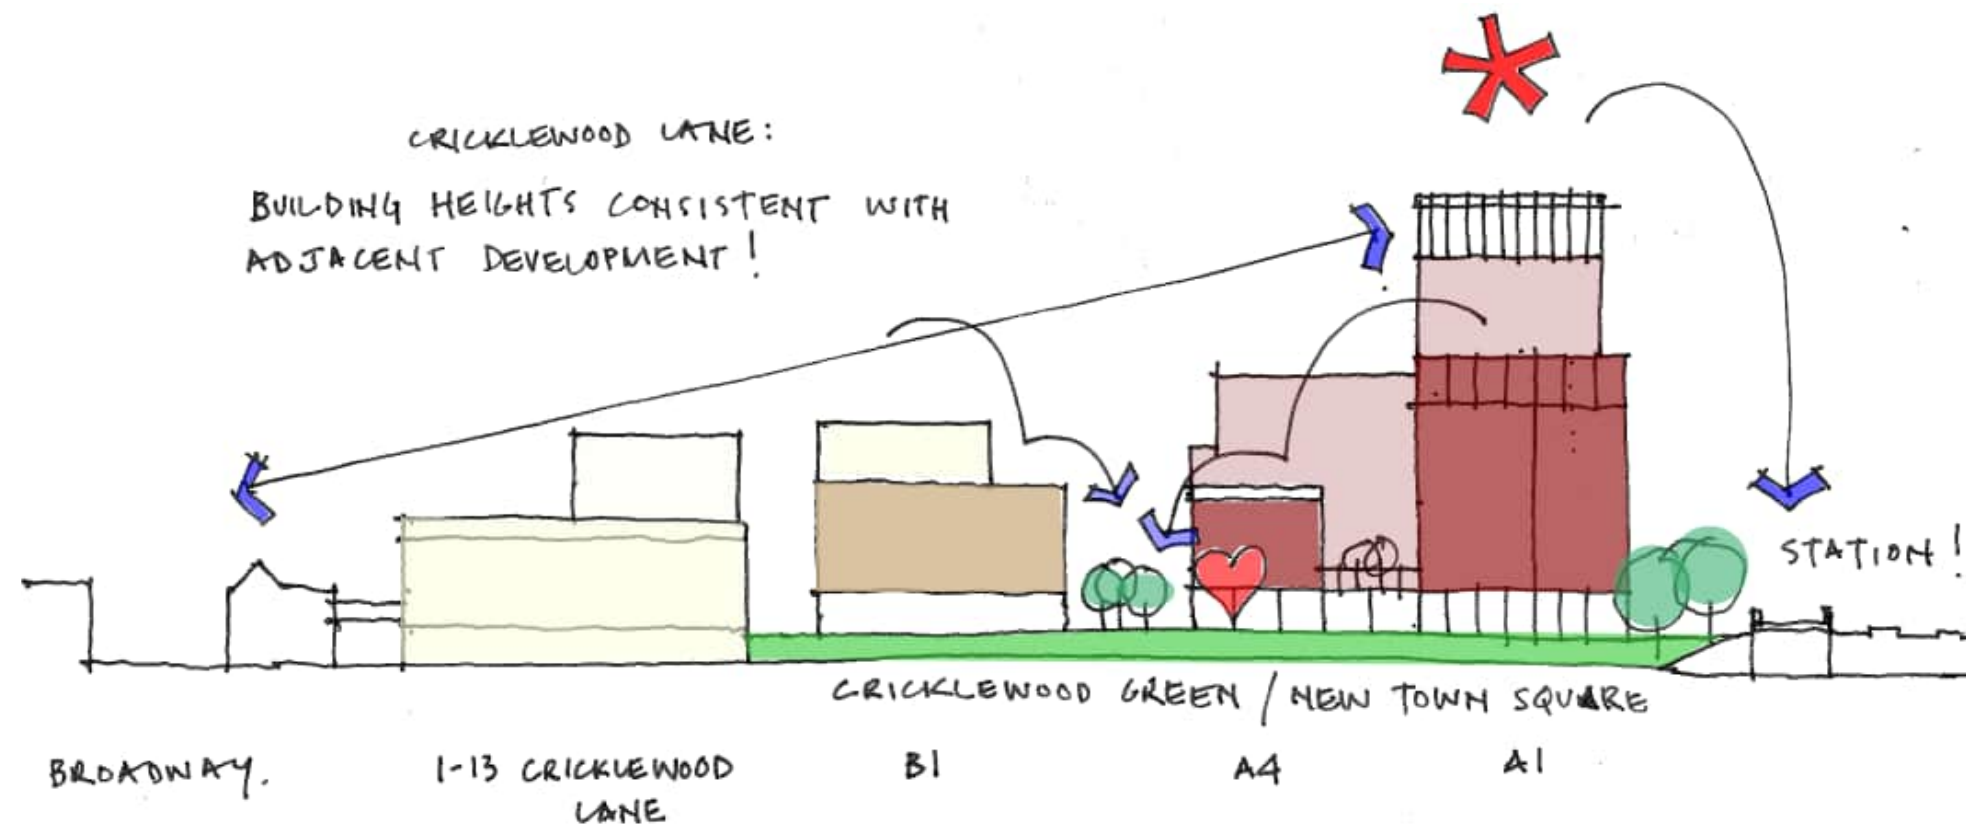 CRICKLEWOOD LANE:
BUILDING HEIGHTS CONSISTENT WITH
ADJACENT DEVELOPMENT!
STATION!
CRICKLEWOOD GREEN / NEW TOWN SQUARE
BROADWAY.
1-13 CRICKLEWOOD
LANE
B1
A4
A1